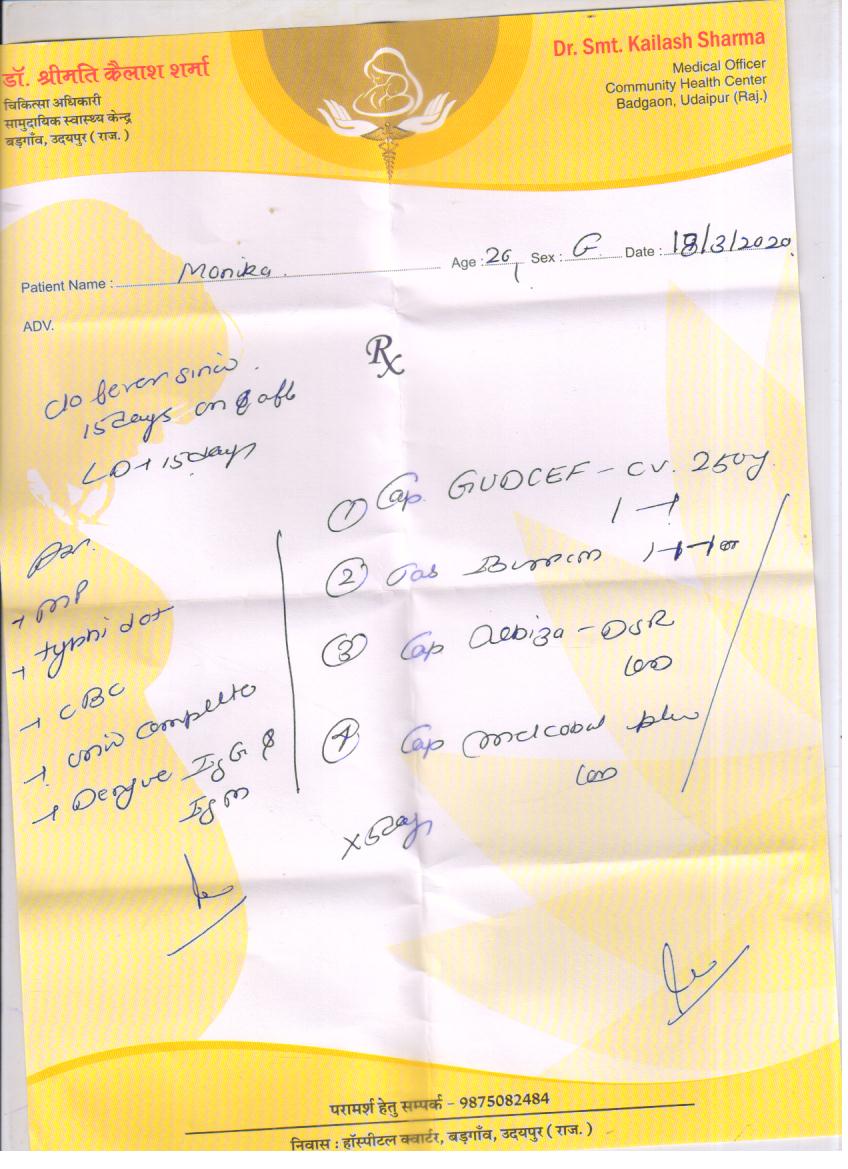 डॉ. श्रीमति कैलाश शर्मा
चिकित्सा अधिकारी
सामुदायिक स्वास्थ्य केन्द्र
बड़गाँव, उदयपुर ( राज. )
Dr. Smt. Kailash Sharma
Medical Officer
Community Health Center
Badgaon, Udaipur (Raj.)
Patient Name : Monika. Age : 26 Sex : Date : 18/3/2020
ADV.
Rx
c/o fever since
15 days on & off
15 days
+ MP
+ typhi dot
+ CBC
+ complete
+ Dengue IgG &
IgM
① Cap. GUDCEF - CV. 250
② Tab
③ Cap - DSR
④ Cap plus
x 5 days
परामर्श हेतु सम्पर्क - 9875082484
निवास : हॉस्पीटल क्वार्टर, बड़गाँव, उदयपुर ( राज. )